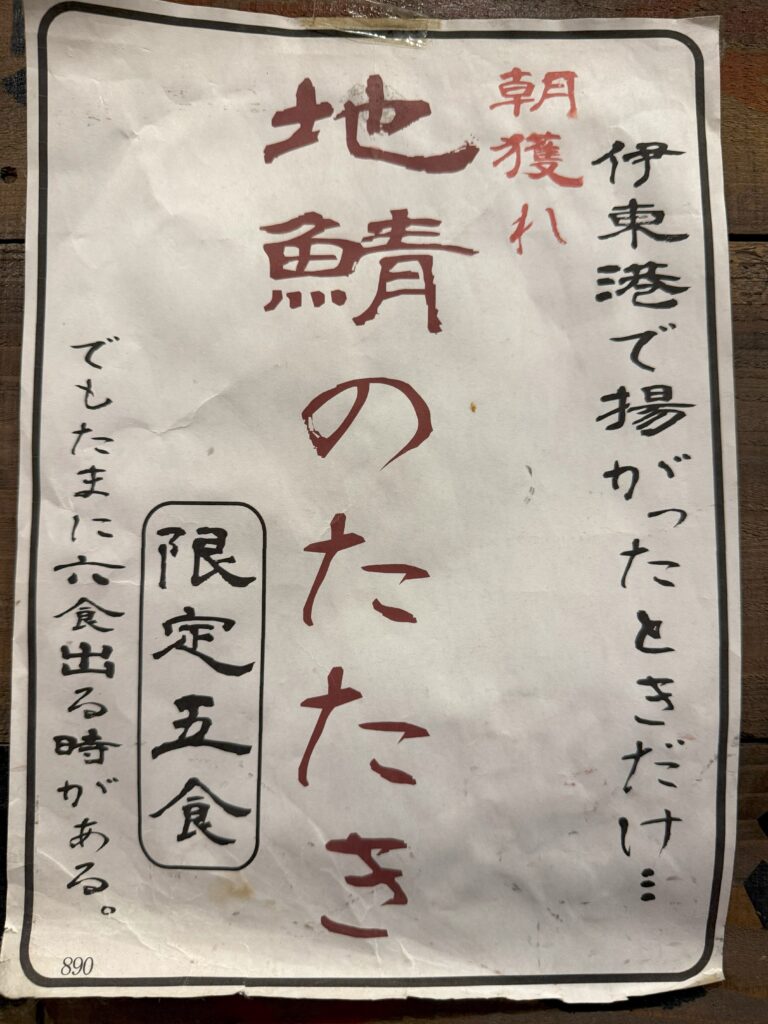 伊東港で揚がったときだけ…
朝獲れ
地鯖のたたき
限定五食
でもたまに六食出る時がある。
890